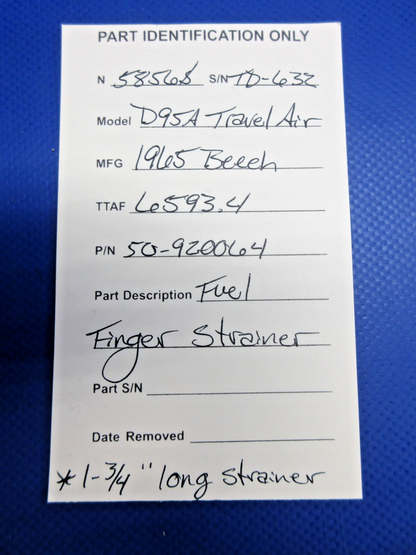 PART IDENTIFICATION ONLY
N 5856S S/N TD-632
Model D95A Travel Air
MFG 1965 Beech
TTAF 6593.4
P/N 50-920064
Part Description Fuel
Finger Strainer
Part S/N
Date Removed
* 1-3/4" long strainer